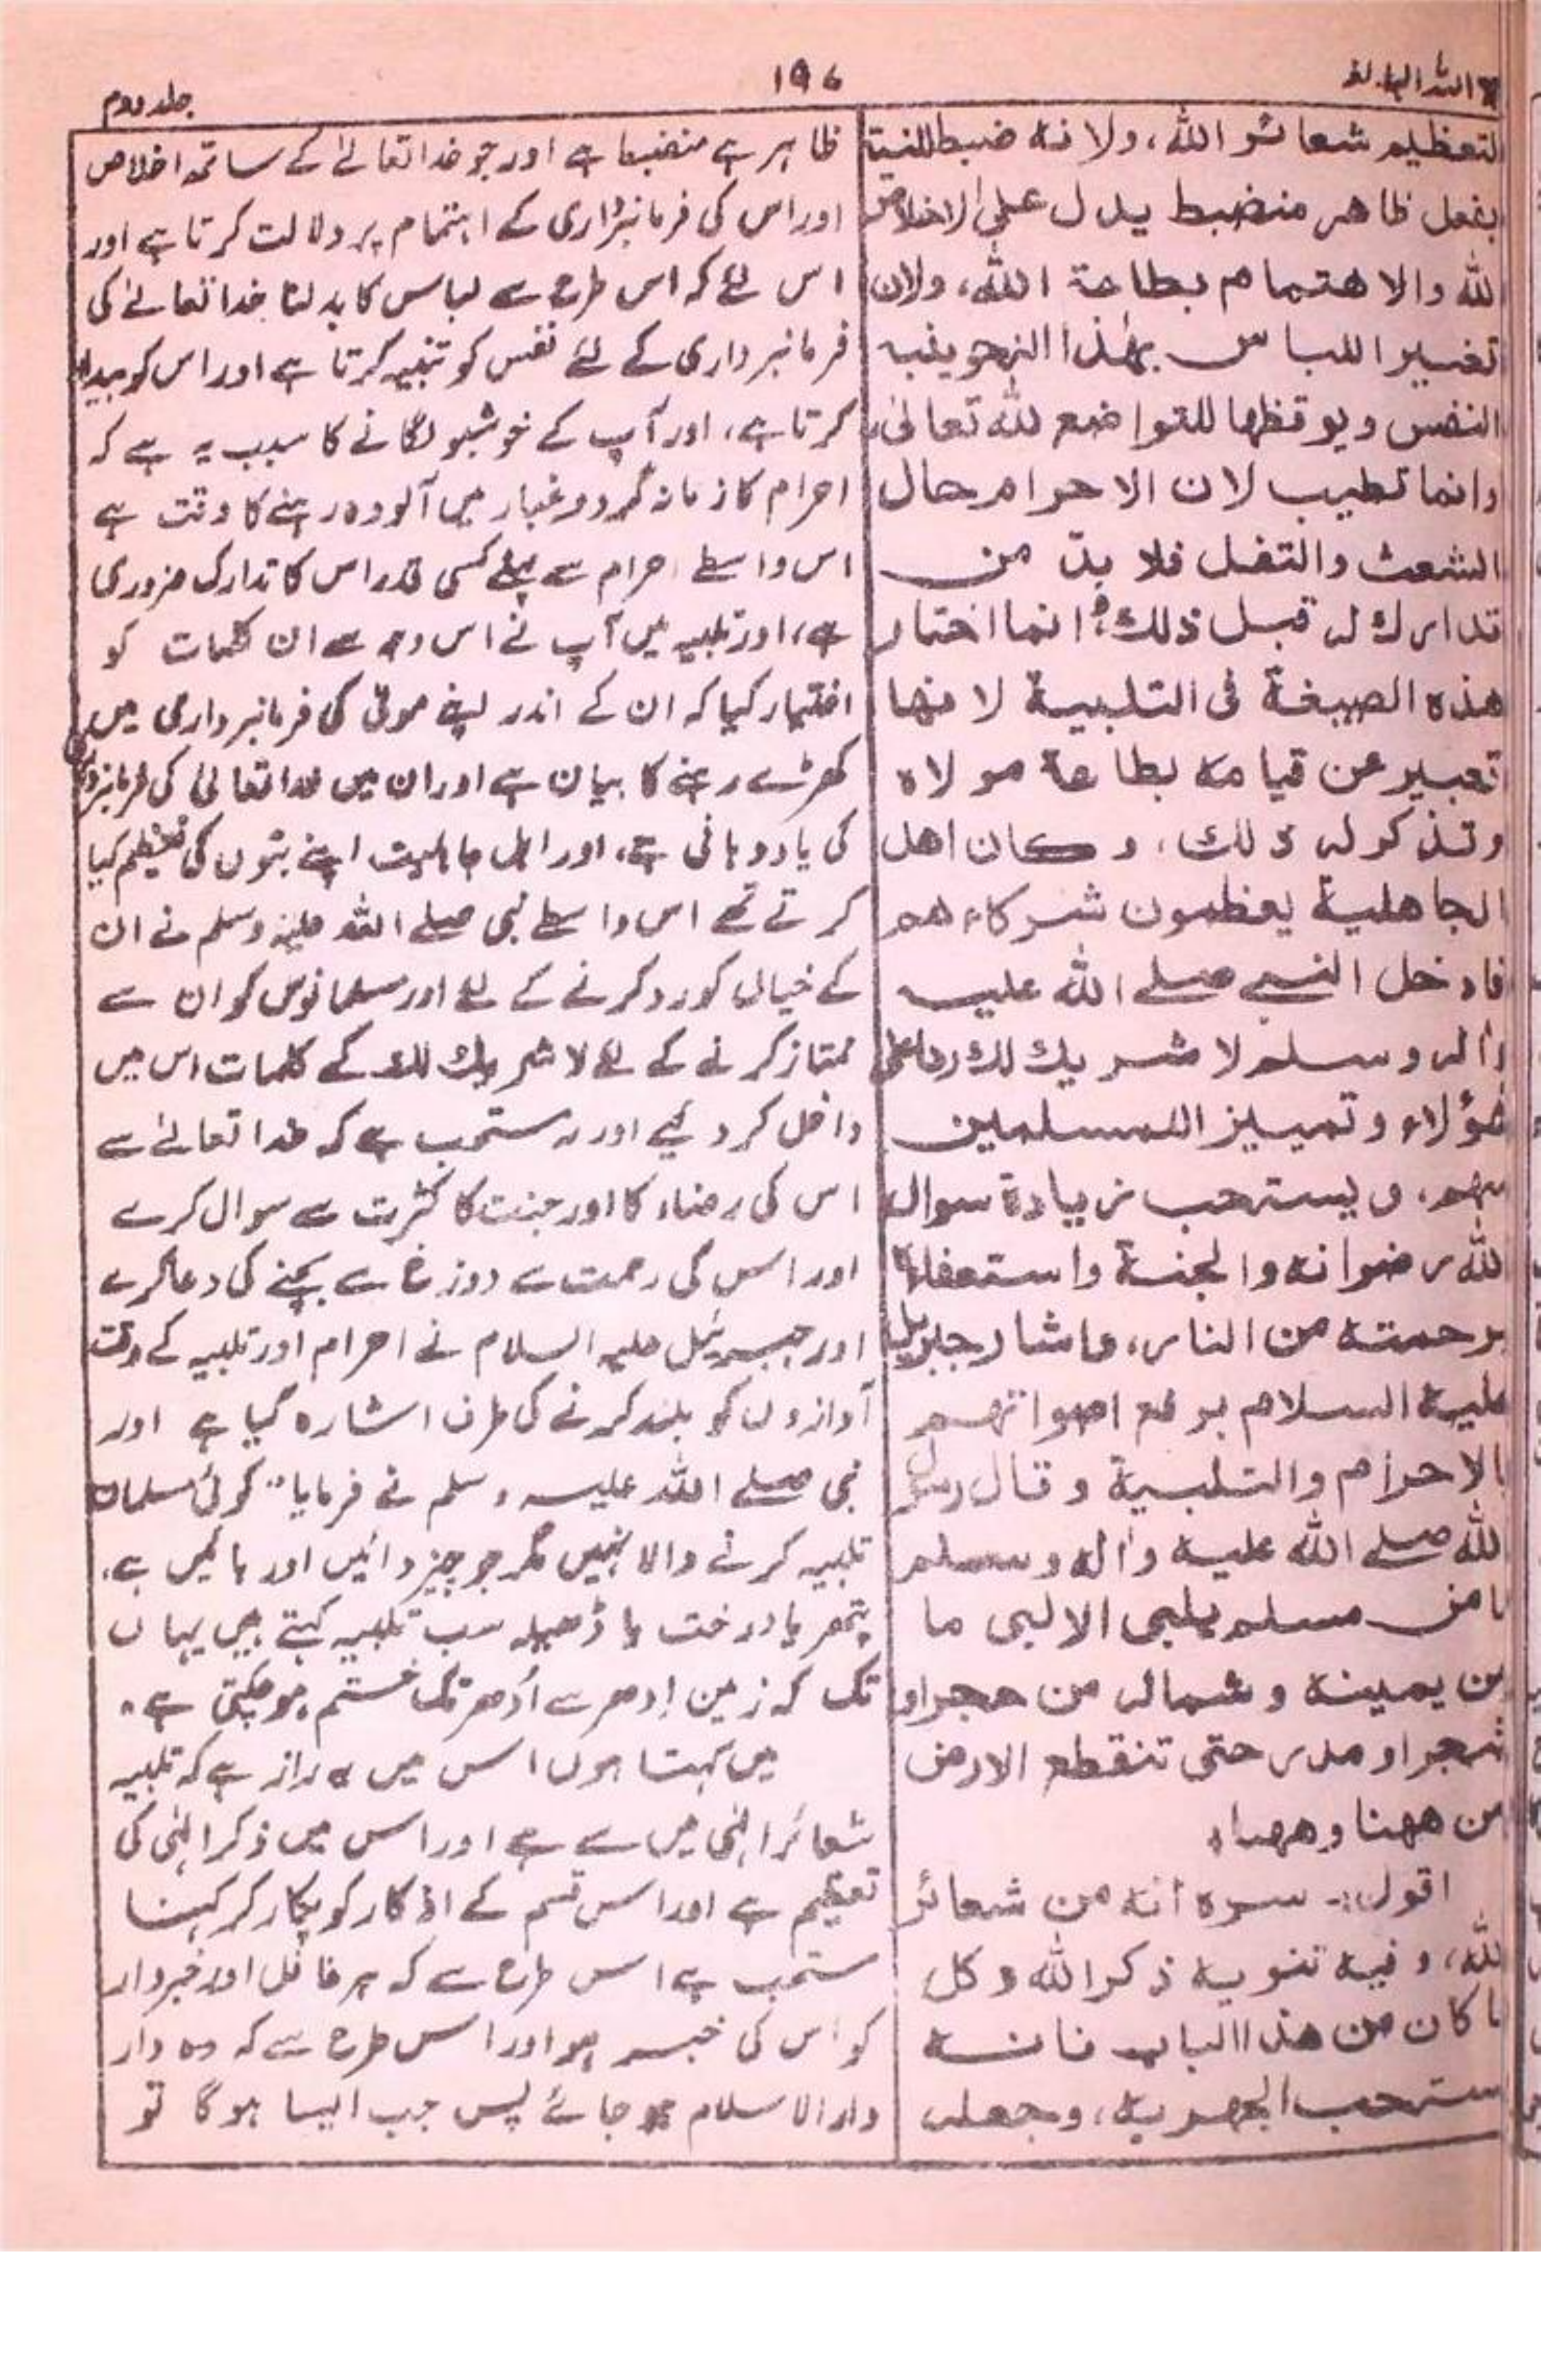 اللہ البالغہ
۱۹۷
جلد دوم
لتعظيم شعائر الله، ولانه ضبط للنية
بفعل ظاهر منضبط يدل على الاخلاص
لله والاهتمام بطاعة الله، ولان
تغيير اللباس بهذا النحو ينبه
النفس ويوقظها للتواضع لله تعالى،
وانما تطيب لان الاحرام حال
الشعث والتفل فلا بدّ من
تدارك له قبل ذلك، انما اختار
هذه الصيغة في التلبية لانها
تعبير عن قيامه بطاعة مولاه
وتذكر له ذلك، وكان اهل
الجاهلية يعظمون شركاءهم
فادخل النبي صلے الله عليه
واله وسلم لا شريك لك ردا على
هؤلاء وتمييز اللمسلمين
منهم، ويستحب زيادة سوال
الله رضوانه والجنة واستعفائه
برحمته من النار، واشار جبريل
عليه السلام برفع اصواتهم
بالاحرام والتلبية وقال رسول
الله صلے الله عليه واله وسلم
ما من مسلم يلبي الا لبى ما
من يمينه وشماله من حجر او
شجر او مدر حتى تنقطع الارض
من ههنا وههنا،
اقول:- سره انه من شعائر
الله، وفيه تنويه ذكر الله وكل
ما كان من هذا الباب فانه
يستحب الجهر به، وجعله
ظاہر ہے منضبط ہے اور جو خدا تعالیٰ کے ساتھ اخلاص
اور اس کی فرمانبرداری کے اہتمام پر دلالت کرتا ہے اور
اس لئے کہ اس طرح سے لباس کا بدلنا خدا تعالےٰ کی
فرمانبرداری کے لئے نفس کو تنبیہ کرتا ہے اور اس کو بیدار
کرتا ہے، اور آپ کے خوشبو لگانے کا سبب یہ ہے کہ
احرام کا زمانہ گرد و غبار میں آلودہ رہنے کا وقت ہے
اس واسطے احرام سے پہلے کسی قدر اس کا تدارک ضروری
ہے، اور تلبیہ میں آپ نے اس وجہ سے ان کلمات کو
اختیار کیا کہ ان کے اندر اپنے مولیٰ کی فرمانبرداری میں
کھڑے رہنے کا بیان ہے اور ان میں خدا تعالیٰ کی فرمانبرداری
کی یاد دہانی ہے، اور اہل جاہلیت اپنے بتوں کی تعظیم کیا
کرتے تھے اس واسطے نبی صلے اللہ علیہ وسلم نے ان
کے خیال کو رد کرنے کے لئے اور مسلمانوں کو ان سے
ممتاز کرنے کے لئے لا شریک لک کے کلمات اس میں
داخل کر دئیے اور یہ مستحب ہے کہ خدا تعالےٰ سے
اس کی رضاء کا اور جنت کا کثرت سے سوال کرے
اور اس کی رحمت سے دوزخ سے بچنے کی دعا کرے
اور جبرئیل علیہ السلام نے احرام اور تلبیہ کے وقت
آوازوں کو بلند کرنے کی طرف اشارہ کیا ہے اور
نبی صلے اللہ علیہ وسلم نے فرمایا "کوئی مسلمان
تلبیہ کرنے والا نہیں مگر جو چیز دائیں اور بائیں ہے،
پتھر یا درخت یا ڈھیلہ سب تلبیہ کہتے ہیں یہاں
تک کہ زمین اِدھر سے اُدھر تک ختم ہو چکتی ہے"
میں کہتا ہوں اس میں یہ راز ہے کہ تلبیہ
شعائر الٰہی میں سے ہے اور اس میں ذکر الٰہی کی
تعظیم ہے اور اس قسم کے اذکار کو پکار کر کہنا
مستحب ہے اس طرح سے کہ ہر غافل اور خبردار
کو اس کی خبر ہو اور اس طرح سے کہ وہ دار
دار الاسلام ہو جائے پس جب ایسا ہوگا تو